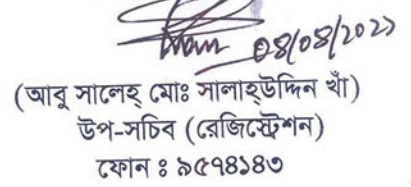 ০৪/০৪/২০২১
(আবু সালেহ্ মোঃ সালাহ্উদ্দিন খাঁ)
উপ-সচিব (রেজিস্ট্রেশন)
ফোন ঃ ৯৫৭৪১৪৩